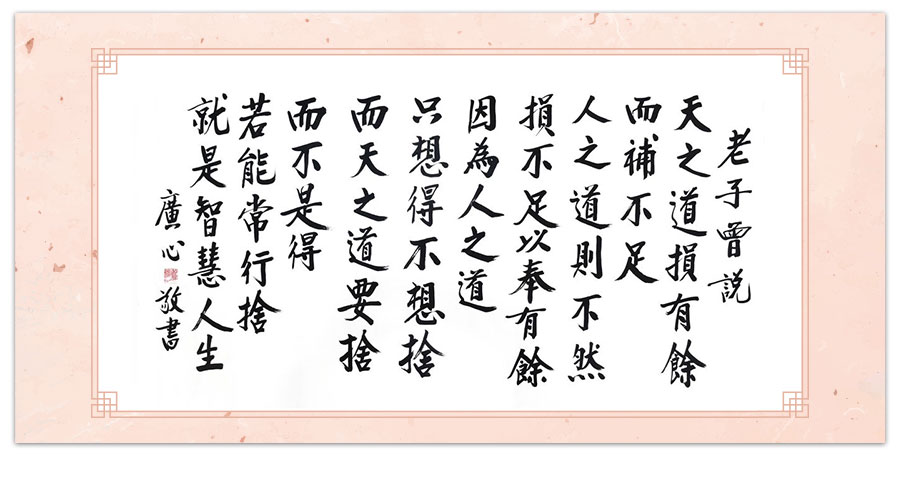 老子曾説
天之道損有餘
而補不足
人之道則不然
損不足以奉有餘
因為人之道
只想得不想捨
而天之道要捨
而不是得
若能常行捨
就是智慧人生
廣心敬書